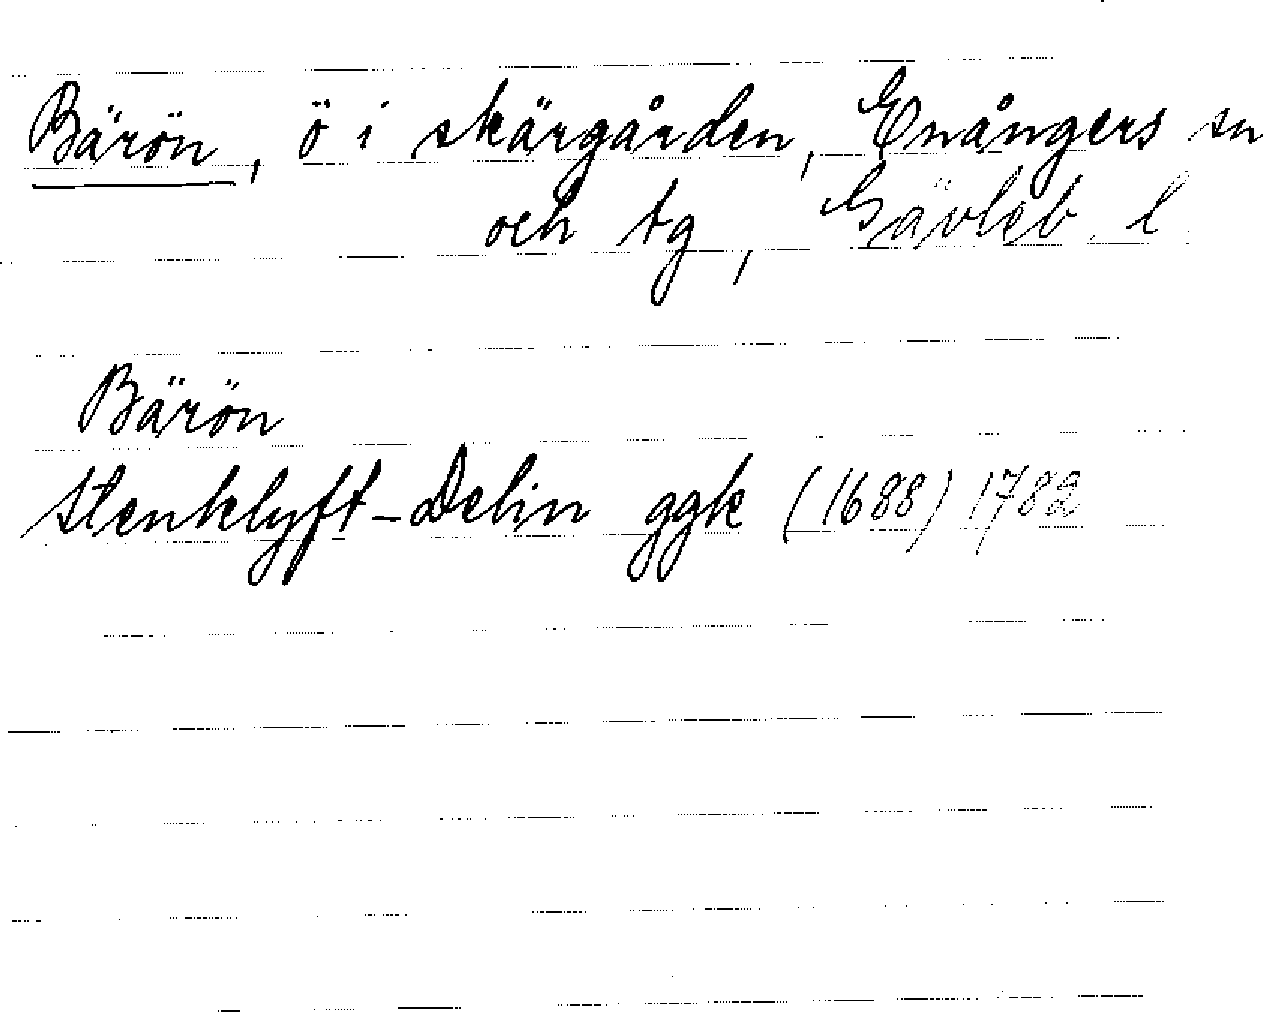 Bärön, ö i skärgården, Enångers sn
och tg, Gävleb. l
Bärön
Stenklyft-Delin ggk (1688) 1782